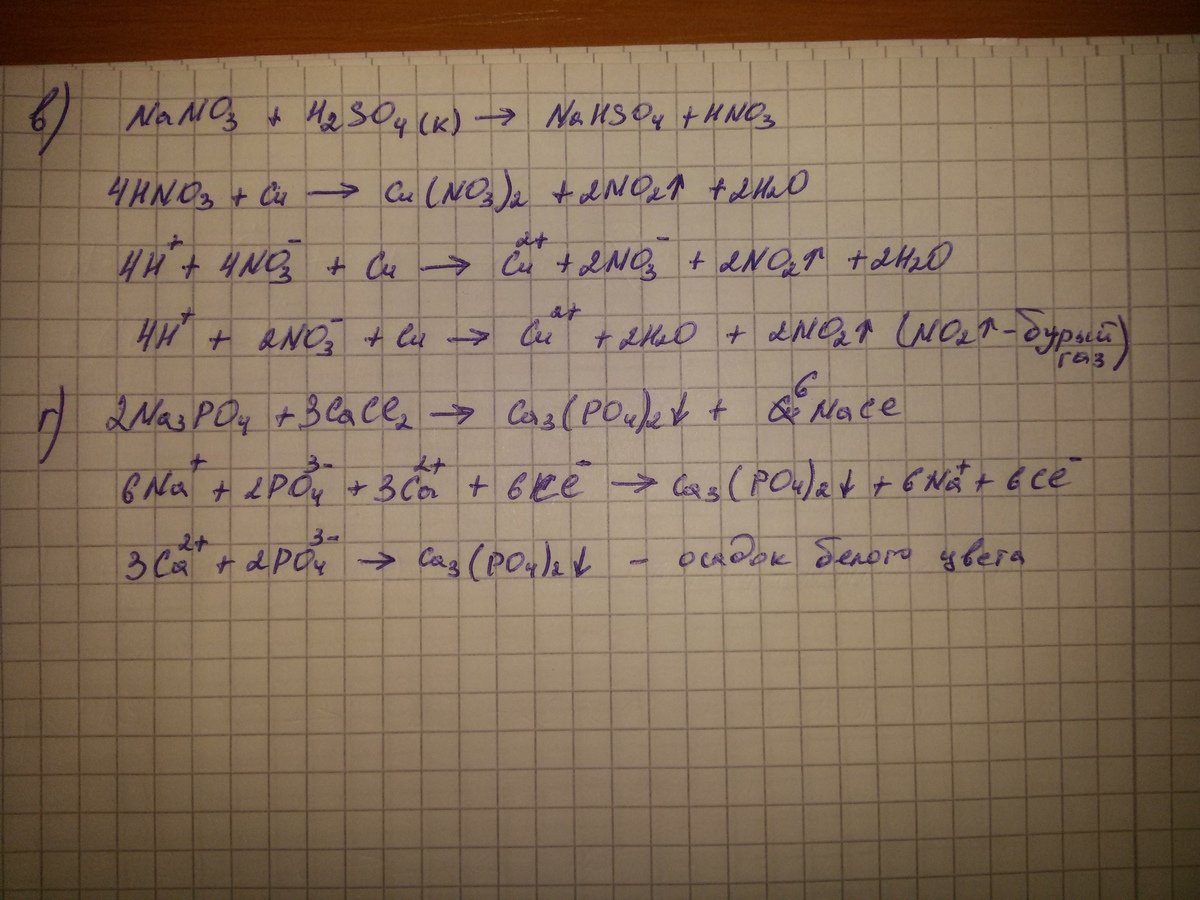 в) NaNO₃ + H₂SO₄(к) → NaHSO₄ + HNO₃
4HNO₃ + Cu → Cu(NO₃)₂ + 2NO₂↑ + 2H₂O
4H⁺ + 4NO₃⁻ + Cu → Cu²⁺ + 2NO₃⁻ + 2NO₂↑ + 2H₂O
4H⁺ + 2NO₃⁻ + Cu → Cu²⁺ + 2H₂O + 2NO₂↑ (NO₂↑ - бурый газ)
г) 2Na₃PO₄ + 3CaCl₂ → Ca₃(PO₄)₂↓ + 6NaCl
6Na⁺ + 2PO₄³⁻ + 3Ca²⁺ + 6Cl⁻ → Ca₃(PO₄)₂↓ + 6Na⁺ + 6Cl⁻
3Ca²⁺ + 2PO₄³⁻ → Ca₃(PO₄)₂↓ - осадок белого цвета